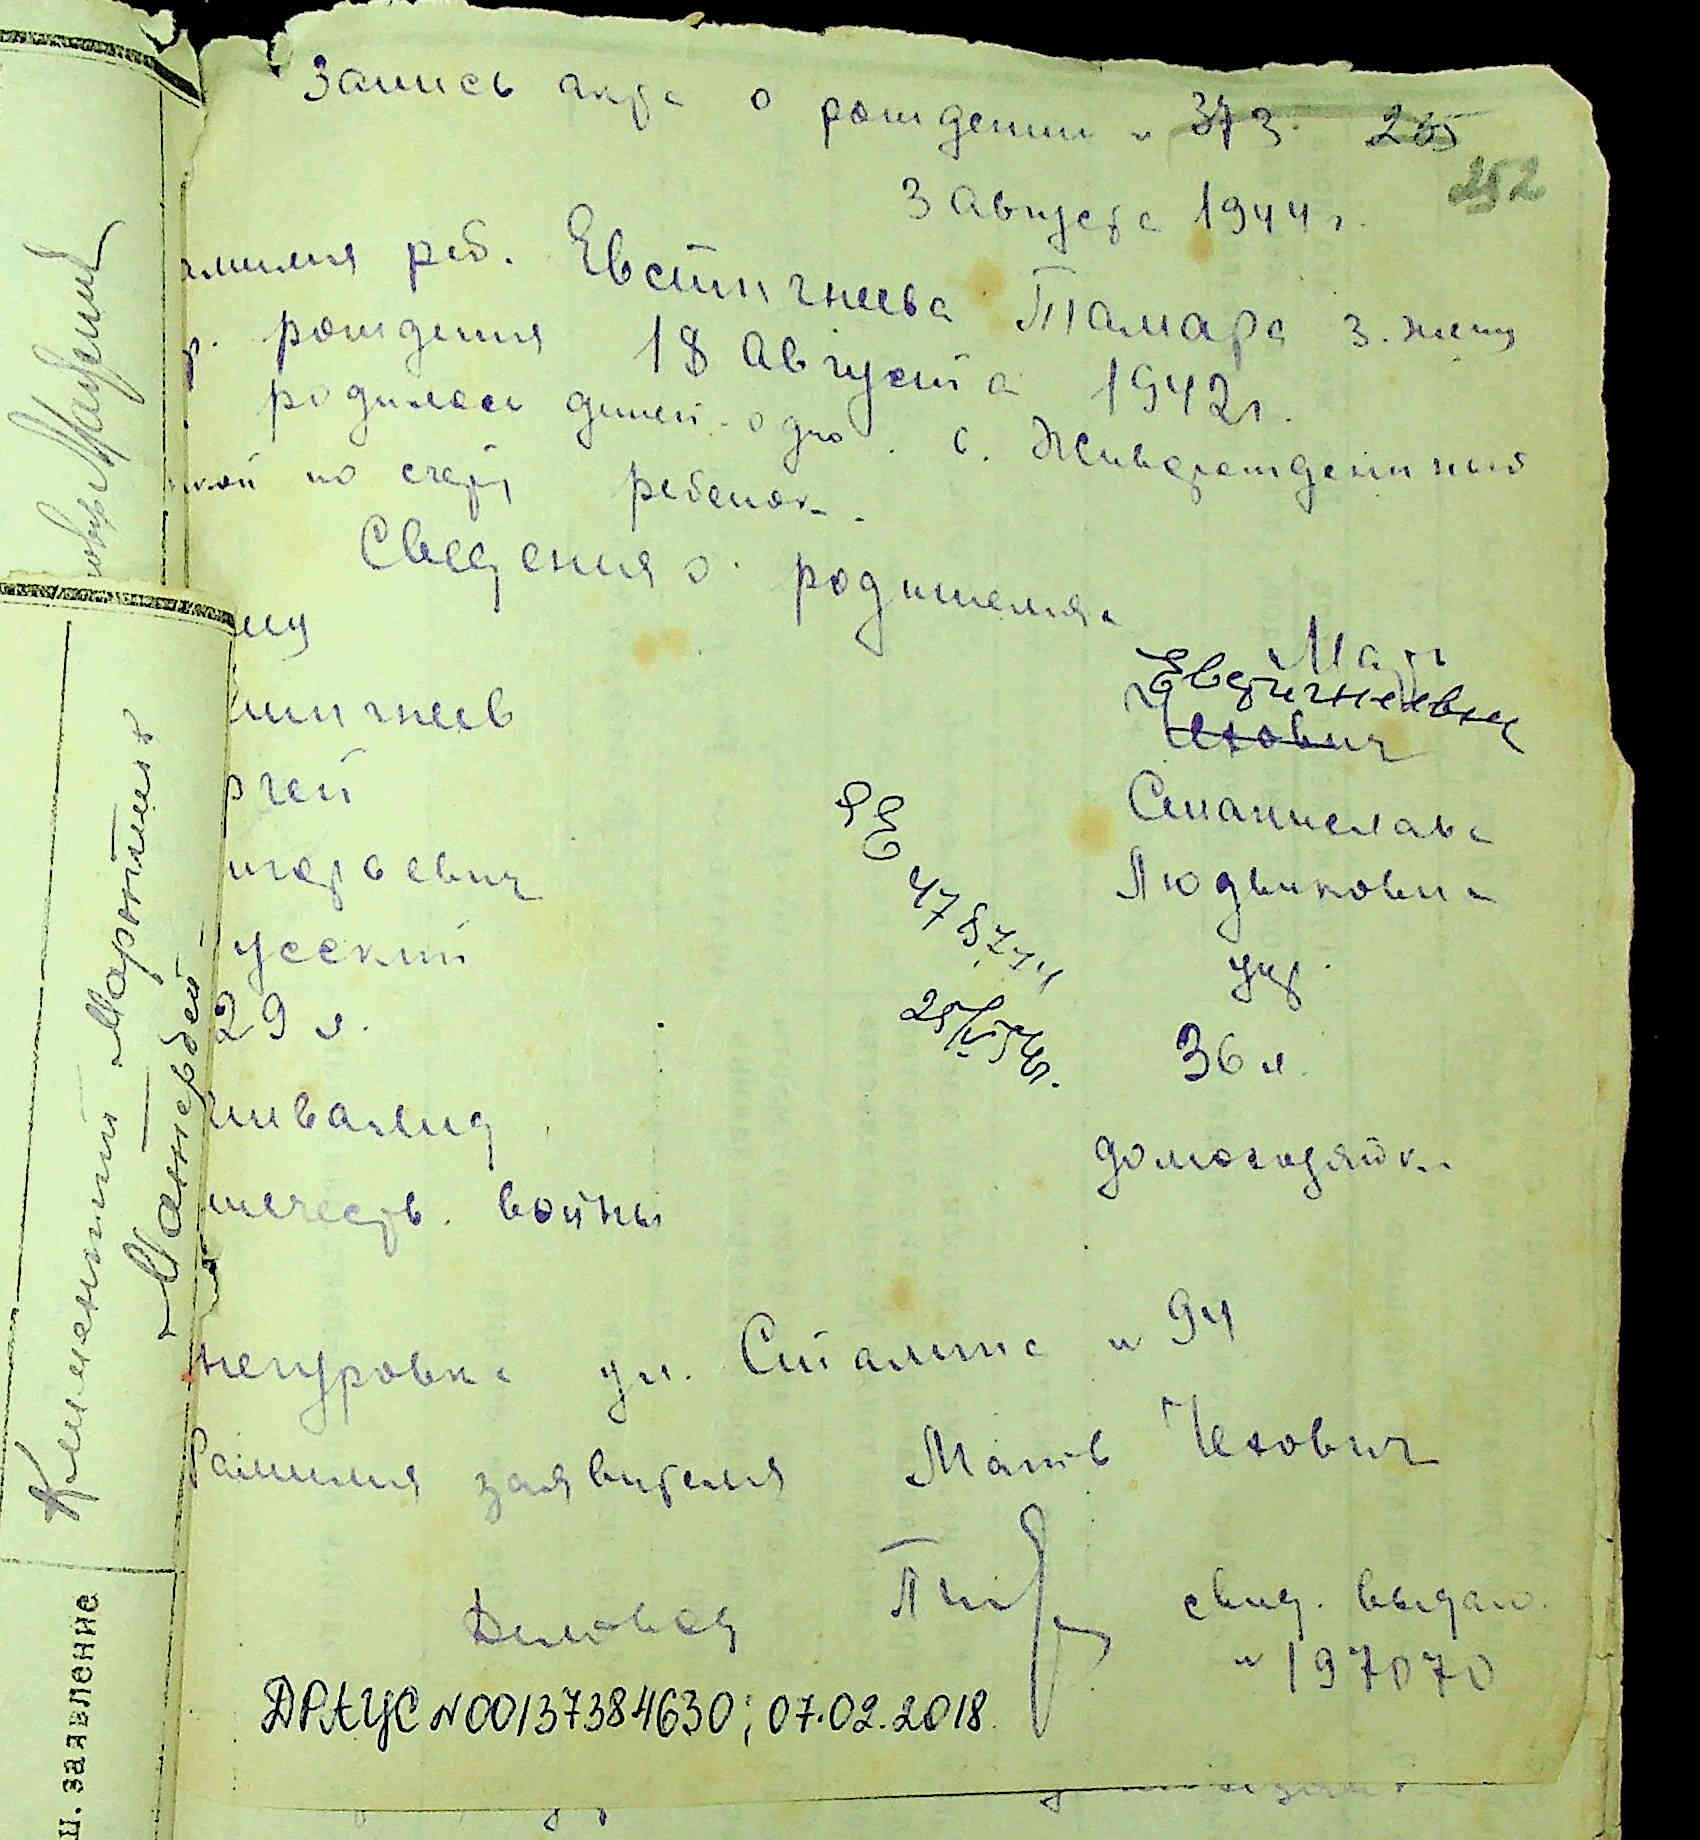 Запись акта о рождении N 373 255
252
3 августа 1944 г.
амилия реб. Евстигнеева Тамара 3. жен
р. рождения 18 августа 1942 г.
родилось детей одно. 6. Живорожденный
по счету ребенок.
Сведения о родителях
Мать
тигнеев Евстигнеева
Чехович
ргей Станислава
игорьевич Людвиковна
усский укр.
29 л. 36 л.
ЯЕ 478744
инвалид домохозяйка
течеств. войны
негуровка ул. Сталина N 94
Фамилия заявителя Мать Чехович
свид. выдано
N 197070
ДРАЦС N00137384630; 07.02.2018
Климентий
ш. заявление